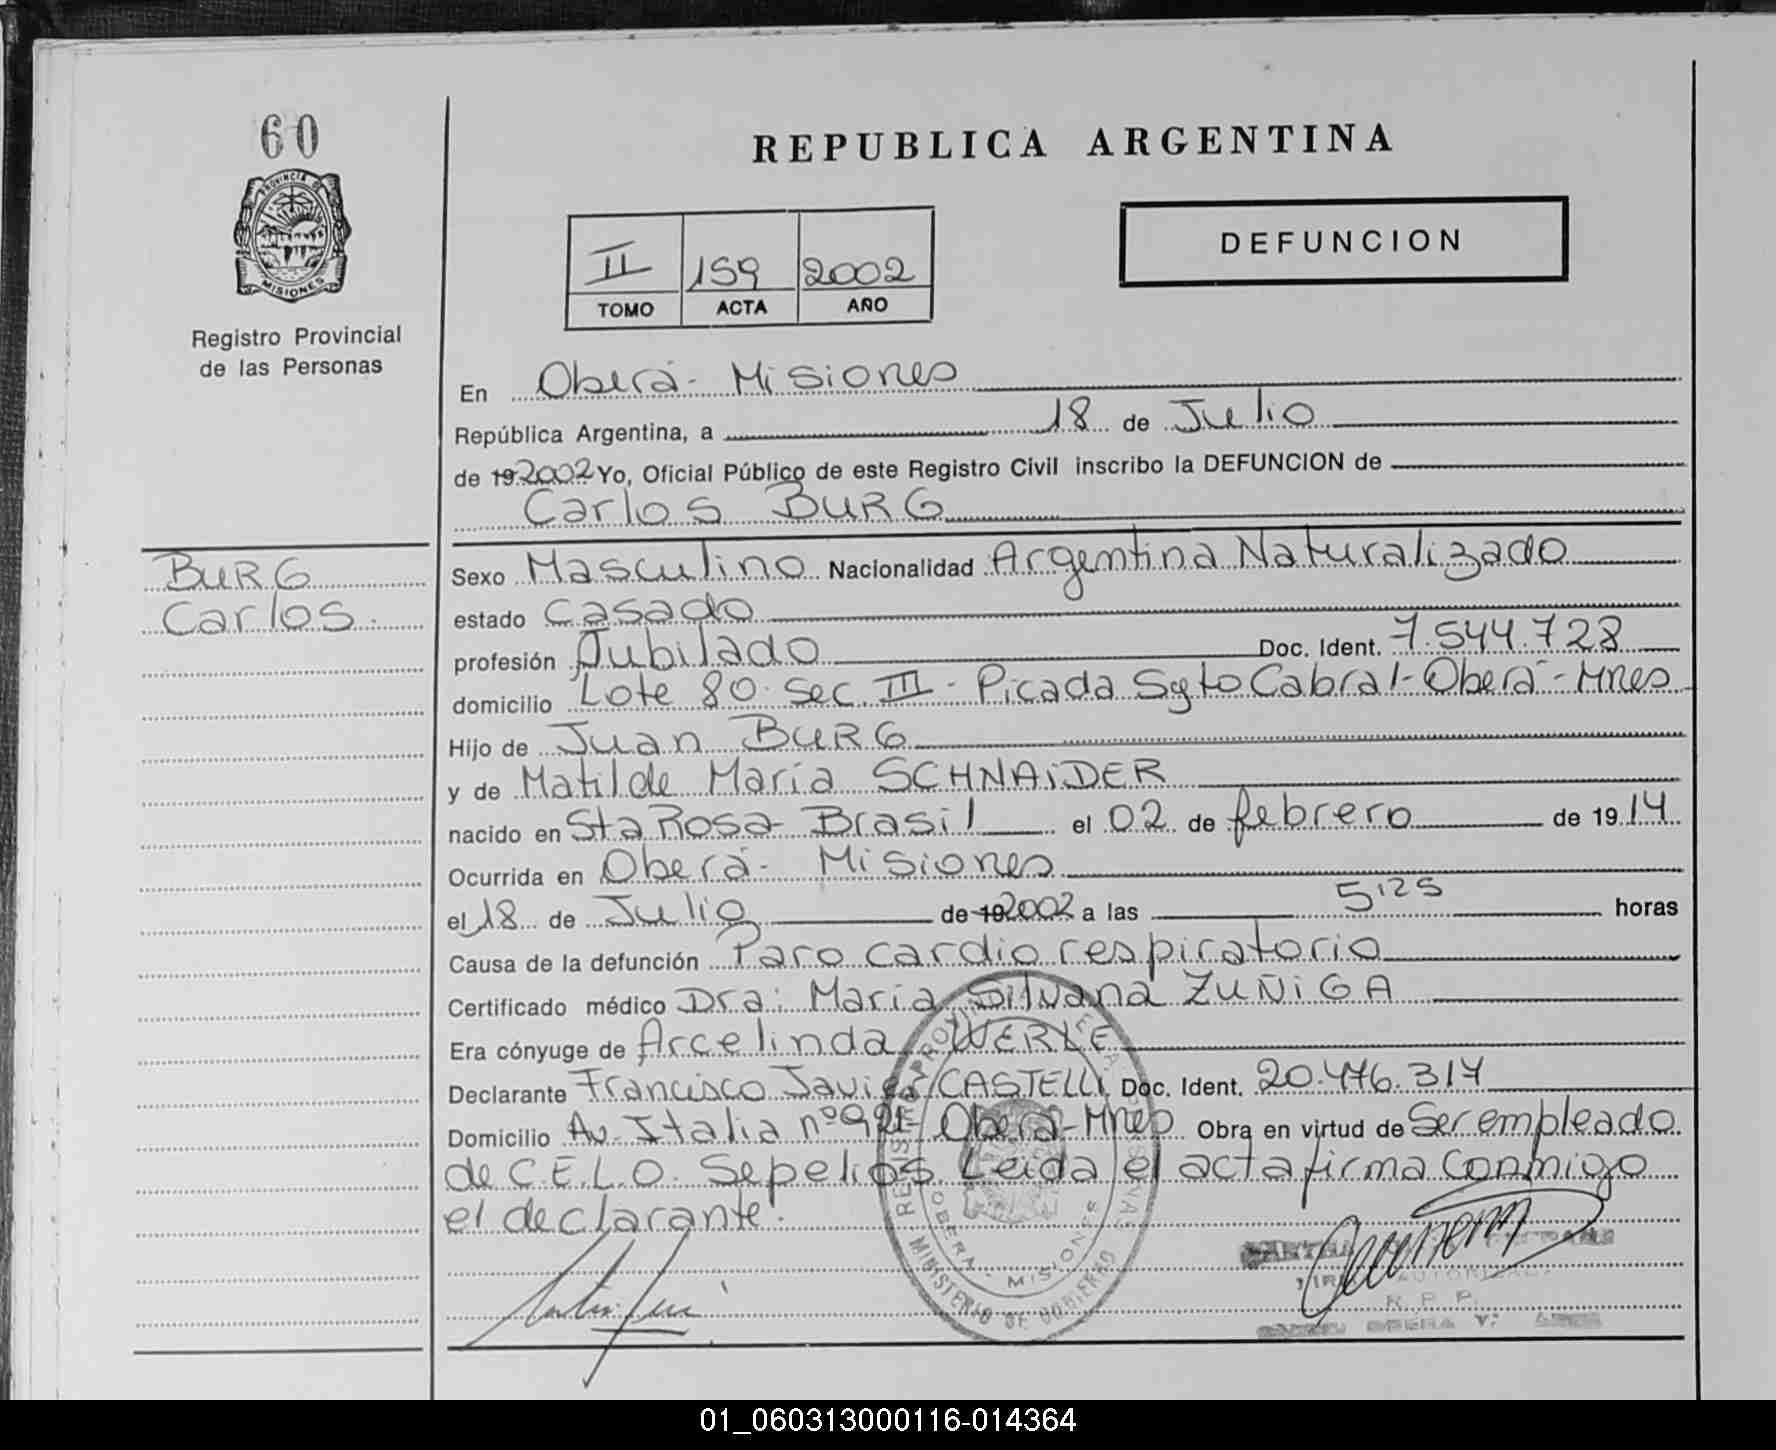 60
PROVINCIA DE
MISIONES
Registro Provincial
de las Personas
REPUBLICA ARGENTINA
DEFUNCION
II 159 2002
TOMO ACTA AÑO
En Oberá - Misiones
República Argentina, a 18 de Julio
de 19 2002 Yo, Oficial Público de este Registro Civil inscribo la DEFUNCION de
Carlos BURG
BURG
Carlos.
Sexo Masculino Nacionalidad Argentina Naturalizado
estado casado
profesión Jubilado Doc. Ident. 7.544.728
domicilio Lote 80. Sec. III - Picada Sgto Cabral - Oberá - Mnes
Hijo de Juan BURG
y de Matilde María SCHNAIDER
nacido en Sta Rosa - Brasil el 02 de febrero de 1914
Ocurrida en Oberá - Misiones
el 18 de Julio de 19 2002 a las 5:25 horas
Causa de la defunción Paro cardio respiratorio
Certificado médico Dra: María Silvana ZUÑIGA
Era cónyuge de Arcelinda WERLE
Declarante Francisco Javier CASTELLI Doc. Ident. 20.476.317
Domicilio Av. Italia nº 921 - Oberá - Mnes Obra en virtud de Ser empleado
de C.E.L.O. Sepelios. Leida el acta firma conmigo
el declarante.
OBERA - MISIONES
MINISTERIO DE GOBIERNO
R. P. P.
01_060313000116-014364